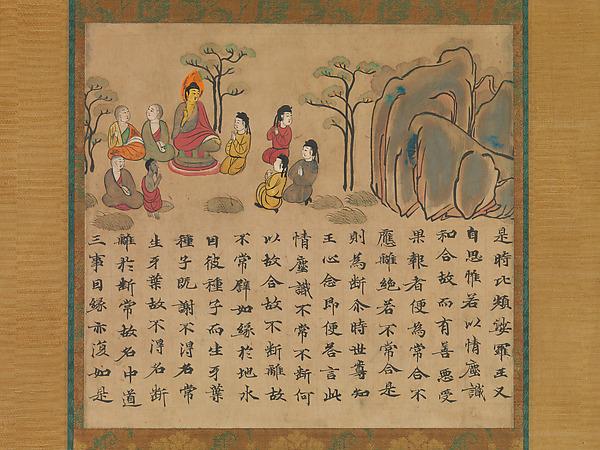 是時比類娑羅王又
自思惟若以情塵識
和合故而有善惡受
果報者便為常合不
應離絕若不常合是
則為斷尒時世尊知
王心念即便荅言此
情塵識不常不斷何
以故合故不斷離故
不常譬如緣於地水
因彼種子而生牙葉
種子既謝不得名常
生牙葉故不得名斷
離於斷常故名中道
三事因緣亦復如是